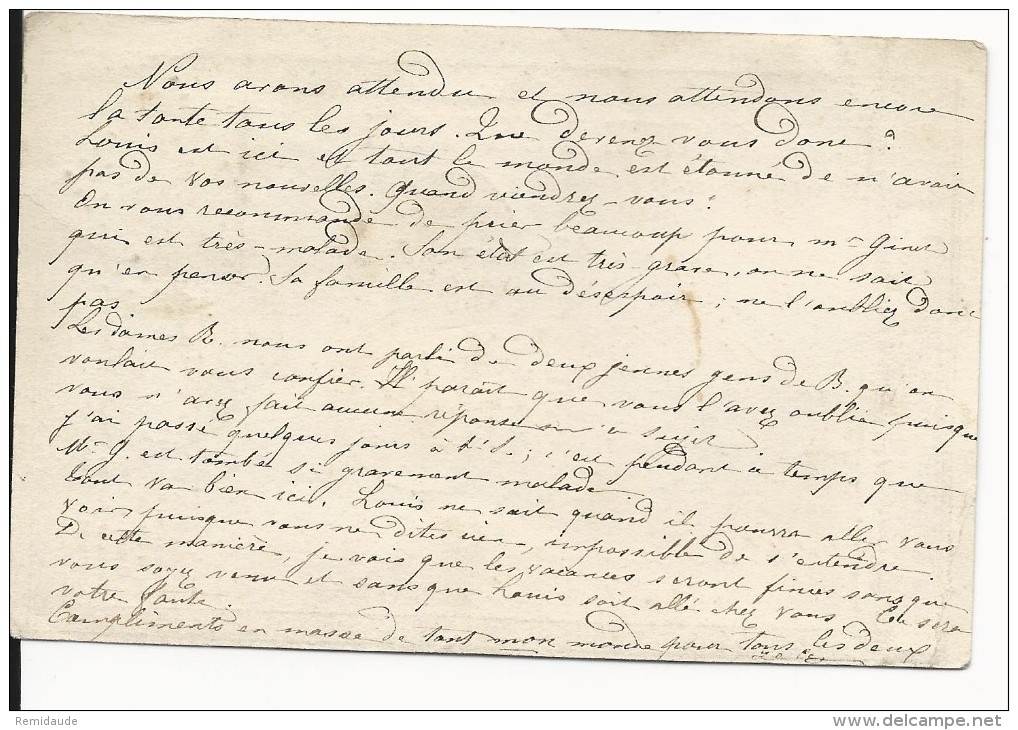 Nous avons attendu et nous attendons encore
la tante tous les jours. Que devenez vous donc ?
Louis est ici et tout le monde est étonné de n'avoir
pas de vos nouvelles. Quand viendrez-vous ?
On vous recommande de prier beaucoup pour mr Giret
qui est très-malade. Son état est très-grave, on ne sait
qu'en penser. Sa famille est au désespoir ; ne l'oubliez donc
pas
Les dames R. nous ont parlé de deux jeunes gens de B. qu'on
voulait vous confier. Il paraît que vous l'avez oublié puisque
vous n'avez fait aucune réponse
j'ai passé quelques jours à ; c'est pendant ce temps que
Mr G. est tombé si gravement malade.
Tout va bien ici. Louis ne sait quand il pourra aller vous
voir, puisque vous ne dites rien, impossible de s'entendre.
De cette manière, je vois que les vacances seront finies sans que
vous soyez venu et sans que Louis soit allé chez vous. Ce sera
votre faute.
Compliments en masse de tout mon monde pour tous les deux
Remidaude
www.delcampe.net